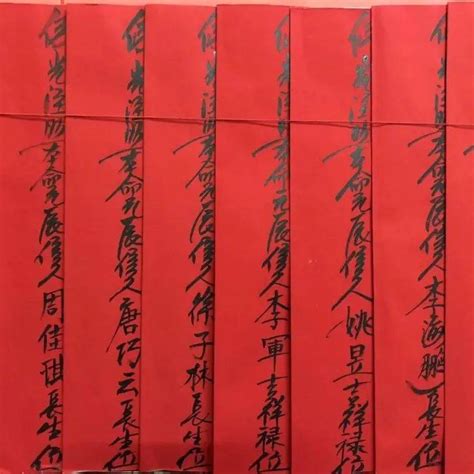 佛光注照本命元辰信人李海鵬長生位
佛光注照本命元辰信人姚昱吉祥祿位
佛光注照本命元辰信人李軍吉祥祿位
佛光注照本命元辰信人徐子林長生位
佛光注照本命元辰信人唐巧云長生位
佛光注照本命元辰信人周佳琪長生位